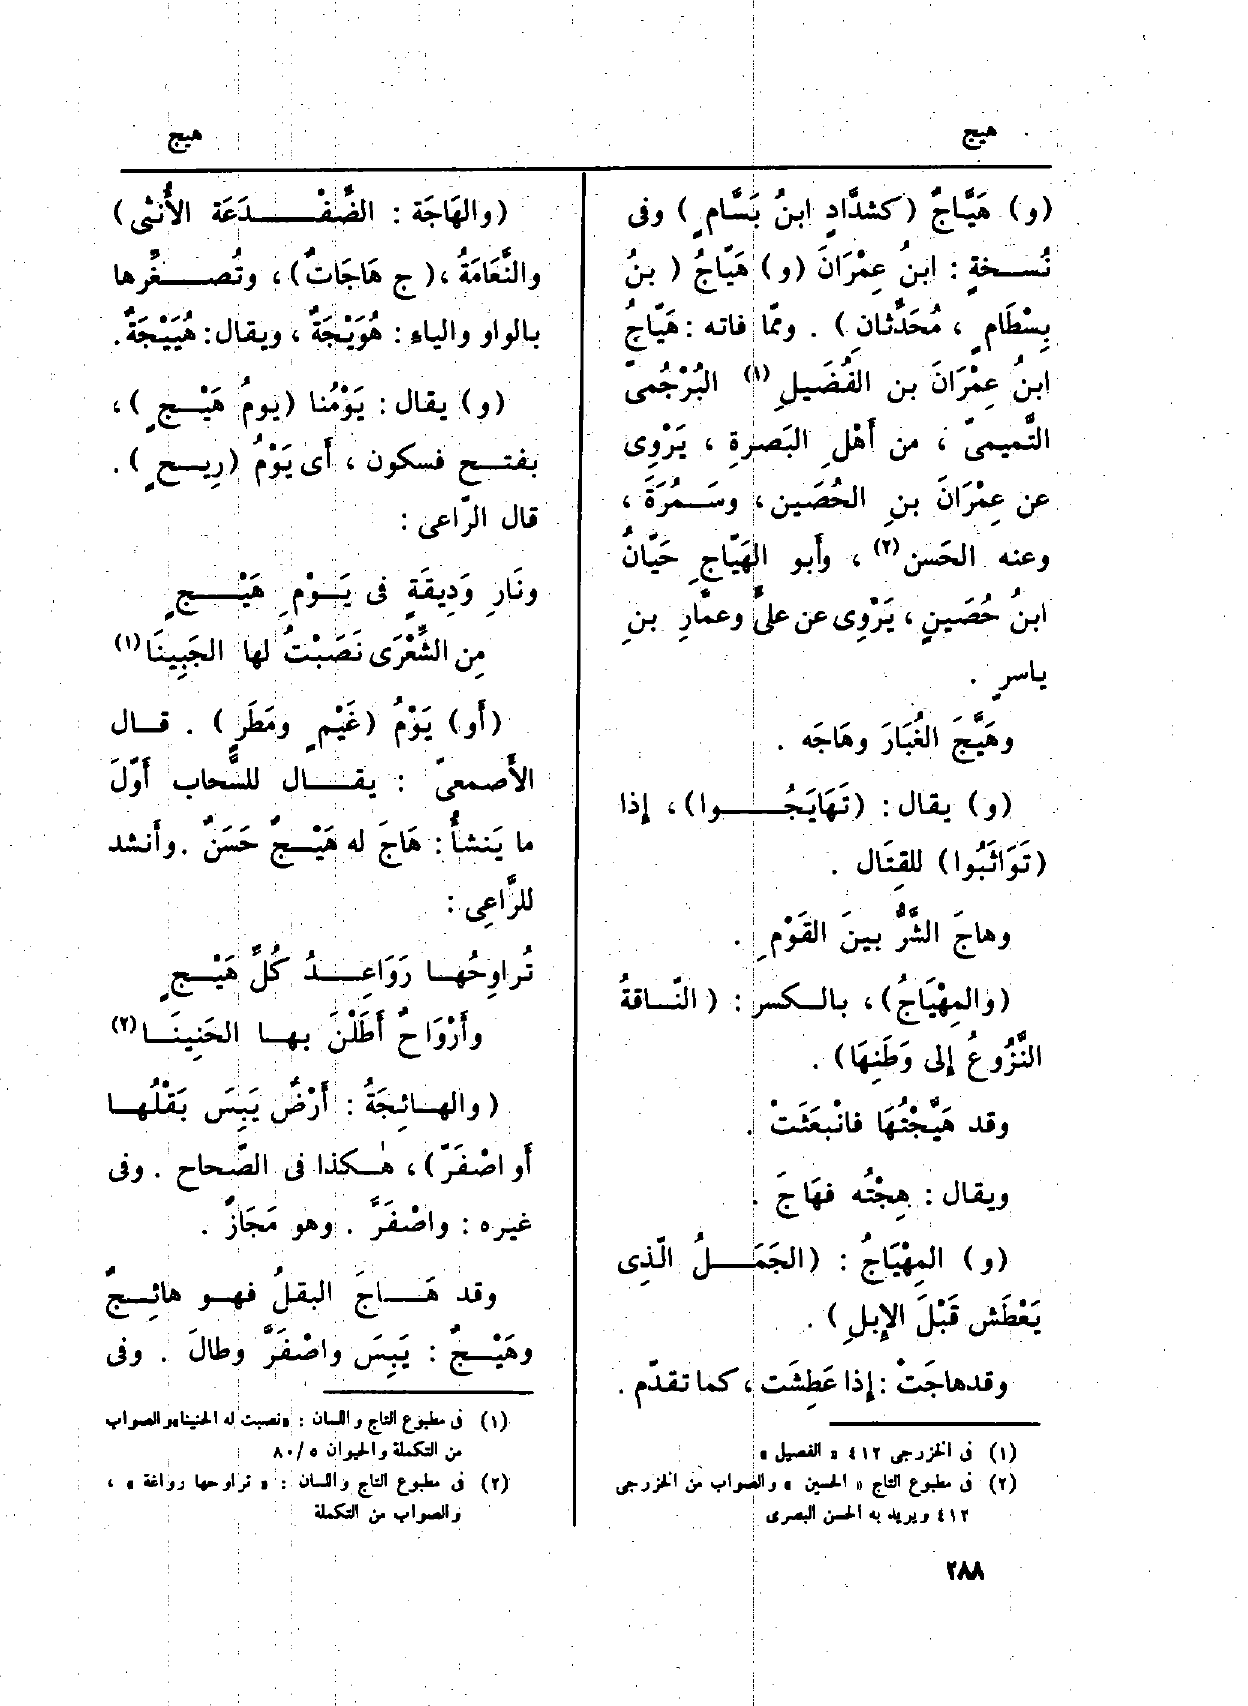 هيج
هيج
(و) هَيَّاجٌ (كشدَّادٍ ابنُ بَسَّامٍ) وفى
نُسخةٍ : ابنُ عِمْرَانَ (و) هَيّاجُ (بنُ
بِسْطَامٍ ، مُحَدِّثانِ) . وممّا فاته : هَيّاجُ
ابنُ عِمْرَانَ بن الفُضَيلِ (١) البُرْجُمىّ
التَّميمىّ ، من أَهْلِ البَصرةِ ، يَرْوِى
عن عِمْرَانَ بنِ الحُصَين ، وسَمُرَةَ ،
وعنه الحَسن (٢) ، وأَبو الهَيّاجِ حَيّانُ
ابنُ حُصَينٍ ، يَرْوِى عن علىٍّ وعمّارِ بنِ
ياسرٍ .
وهَيَّجَ الغُبَارَ وهَاجَه .
(و) يقال : (تَهَايَجُوا) ، إذا
(تَوَاثَبُوا) للقِتَال .
وهاجَ الشَّرُّ بينَ القَوْمِ .
(والمِهْيَاجُ) ، بالكسر : (النَّاقةُ
النَّزُوعُ إلى وَطَنِهَا) .
وقد هَيَّجْتُهَا فانْبعَثَتْ .
ويقال : هِجْتُه فهَاجَ .
(و) المِهْيَاجُ : (الجَمَلُ الّذِى
يَعْطَش قَبْلَ الإبلِ) .
وقد هاجَتْ : إذا عَطِشَت ، كما تقدّم .
(١) فى الخزرجى ٤١٢ « الفصيل »
(٢) فى مطبوع التاج « الحسين » والصواب من الخزرجى
٤١٢ ويريد به الحسن البصرى
(والهَاجَة : الضَّفْدَعَة الأُنثى)
والنَّعَامَةُ ، (ج هَاجَاتٌ) ، وتُصغِّرها
بالواو والياء : هُوَيْجَةٌ ، ويقال : هُيَيْجَةٌ .
(و) يقال : يَوْمُنا (يومُ هَيْجٍ) ،
بفتح فسكون ، أَى يَوْمُ (رِيحٍ) .
قال الرّاعى :
ونَارِ وَدِيقَةٍ فى يَوْمِ هَيْجٍ
مِن الشِّعْرَى نَصَبْتُ لها الجَبِينَا (١)
(أَو) يَوْمُ (غَيْمٍ ومَطَرٍ) . قال
الأَصمعىّ : يقال للسَّحاب أَوّلَ
ما يَنشأُ : هَاجَ له هَيْجٌ حَسَنٌ . وأَنشد
للرَّاعِى :
تُراوِحُها رَوَاعِدُ كُلِّ هَيْجٍ
وأَرْوَاحٌ أَطَلْنَ بها الحَنِينَا (٢)
(والهائِجَةُ : أَرْضٌ يَبِسَ بَقْلُها
أَو اصْفَرّ) ، هٰكذا فى الصّحاح . وفى
غيره : واصْفَرَّ . وهو مَجَازٌ .
وقد هَاجَ البقلُ فهو هائِجٌ
وهَيْجٌ : يَبِسَ واصْفَرَّ وطالَ . وفى
(١) فى مطبوع التاج واللسان : «نصبت له الحنينا» والصواب
من التكملة والحيوان ٥/٨٠
(٢) فى مطبوع التاج واللسان : « تراوحها رواغة » ،
والصواب من التكملة
٢٨٨